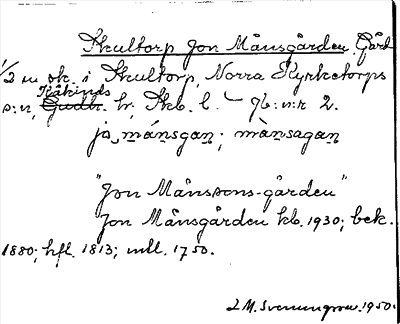 Skultorp Jon Månsgården. Gård
1/2 m ok. i Skultorp, Norra Kyrketorps
Kåkinds
s:n, Gudh. hr, Skb. l. - Jb:n:r 2.
jo mánsgaṇ; mànsagaṇ
"Jon Månssons-gården"
Jon Månsgården kb. 1930; bek.
1880; hfl. 1813; mtl. 1750.
1950.